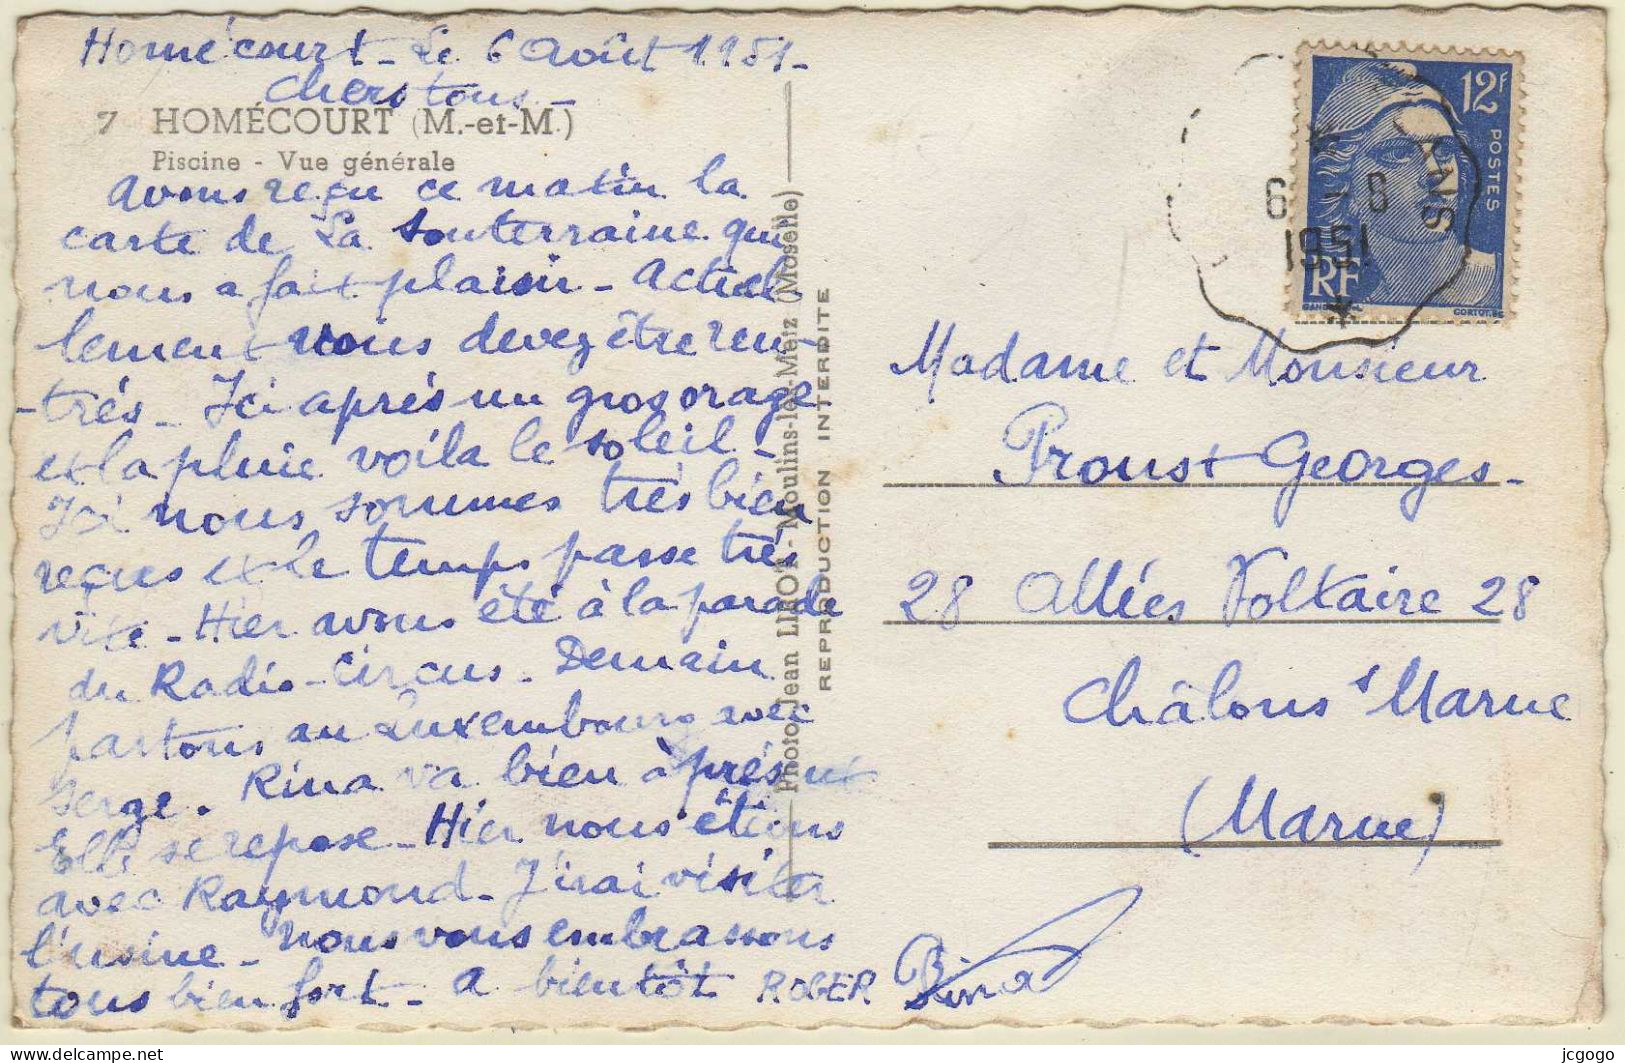 Homécourt - Le 6 Août 1951 -
Chers tous -
7 HOMÉCOURT (M.-et-M.)
Piscine - Vue générale
Avons reçu ce matin la
carte de La Souterraine qui
nous a fait plaisir - Actuel
lement vous devez être ren-
-trés - Ici après un gros orage
et la pluie voila le soleil -
Ici nous sommes très bien
reçus et le temps passe très
vite - Hier avons été à la parade
du Radio-Circus - Demain
partons au Luxembourg avec
Serge. Rina va bien après
Elle se repose - Hier nous étions
avec Raymond - J'irai visiter
l'usine - nous vous embrassons
tous bien fort - A bientôt ROGER
Rina
Photo Jean LIROT - Moulins-lès-Metz (Moselle)
REPRODUCTION INTERDITE
12F
POSTES
RF
GANDON
CORTOT.SC
6 - 8
1951
Madame et Monsieur
Proust Georges -
28 Allées Voltaire 28
Châlons s/ Marne
(Marne)
jcgogo
delcampe.net